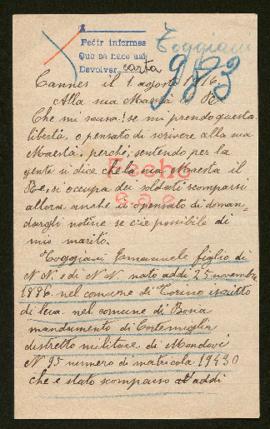 Pedir informes
Que se hace así
Devolver carta
Toggiani
983
Cannes il 1 agosto 1916
Alla sua Maestà il Re
Che mi scusa! se mi prendo questa
libertà, o pensato di scrivere alla sua
Maestà, perchè, sentendo per la
gente si dice che la sua Maestà il
Re, si occupa dei soldati scomparsi
allora anche io pensato di doman-
dargli notizie se c'è possibile di
mio marito.
Toggiani Emanuele figlio di
N. N. e di N. N. nato addì 25 novembre
1886. nel comune di Torino iscritto
di leva. nel comune di
mandamento di Cortemiglia
distretto militare. di Mondovì
N 95 numero di matricola 19430
che è stato scomparso addì
Fecho